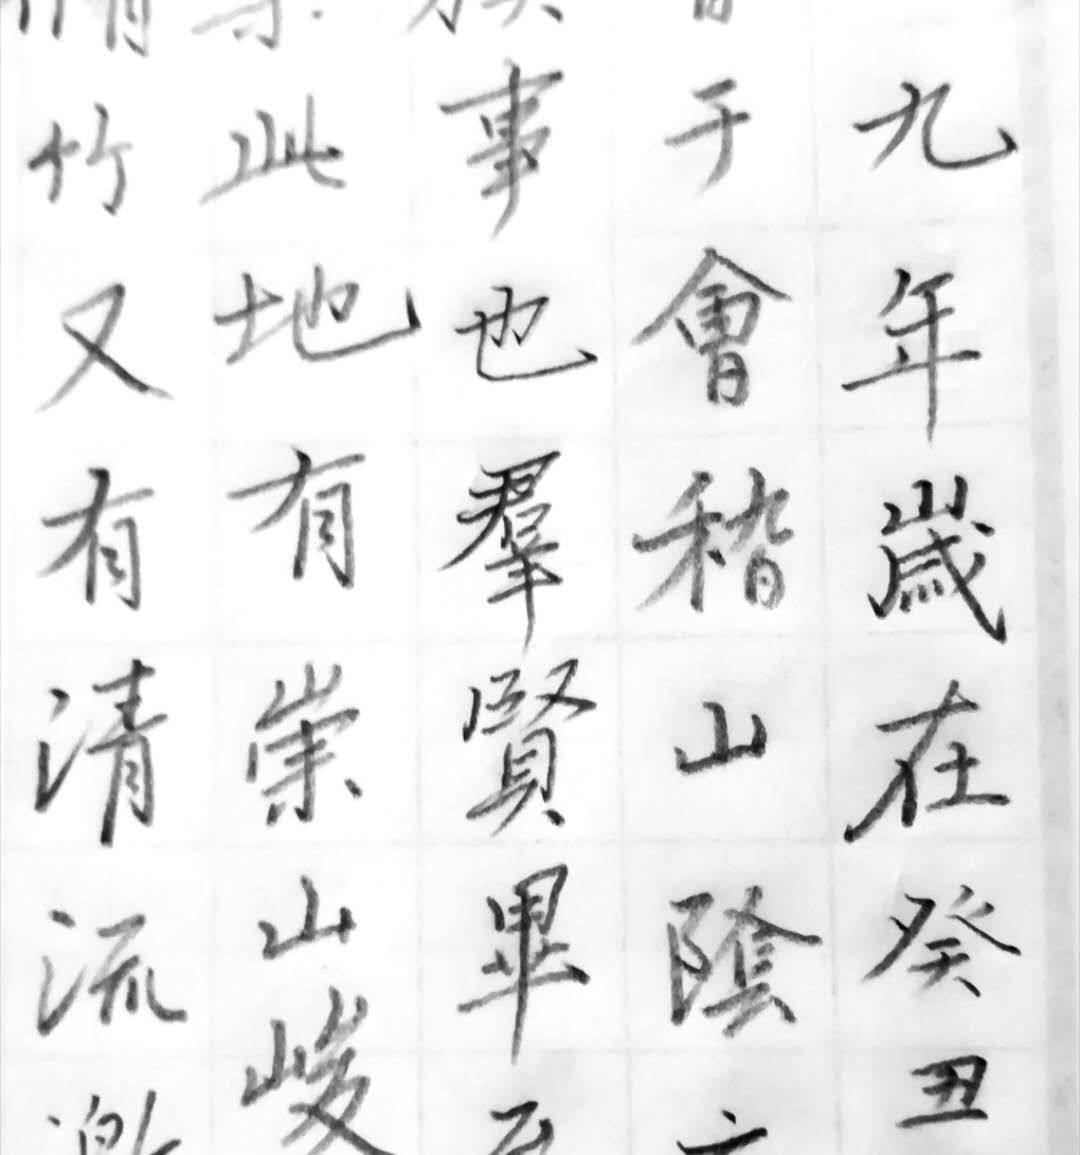 九年歲在癸丑
于會稽山陰
事也羣賢畢
此地有崇山峻
竹又有清流